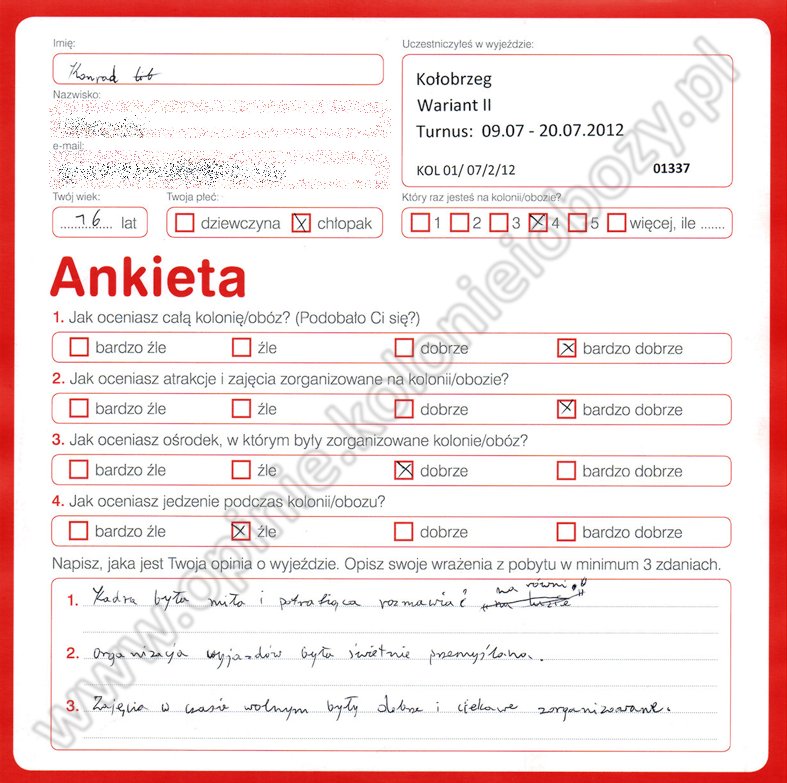 Imię:
Konrad
Nazwisko:
e-mail:
Twój wiek:
16 lat
Twoja płeć:
dziewczyna chłopak
Uczestniczyłeś w wyjeździe:
Kołobrzeg
Wariant II
Turnus: 09.07 - 20.07.2012
KOL 01/ 07/2/12 01337
Który raz jesteś na kolonii/obozie?
1 2 3 4 5 więcej, ile .......
Ankieta
1. Jak oceniasz całą kolonię/obóz? (Podobało Ci się?)
bardzo źle źle dobrze bardzo dobrze
2. Jak oceniasz atrakcje i zajęcia zorganizowane na kolonii/obozie?
bardzo źle źle dobrze bardzo dobrze
3. Jak oceniasz ośrodek, w którym były zorganizowane kolonie/obóz?
bardzo źle źle dobrze bardzo dobrze
4. Jak oceniasz jedzenie podczas kolonii/obozu?
bardzo źle źle dobrze bardzo dobrze
Napisz, jaka jest Twoja opinia o wyjeździe. Opisz swoje wrażenia z pobytu w minimum 3 zdaniach.
1. Kadra była miła i potrafiąca rozmawiać „na luzie" na równi.
2. Organizacja wyjazdów była świetnie przemyślana.
3. Zajęcia w czasie wolnym były dobrze i ciekawe zorganizowane.
www.opinie.kolonieiobozy.pl